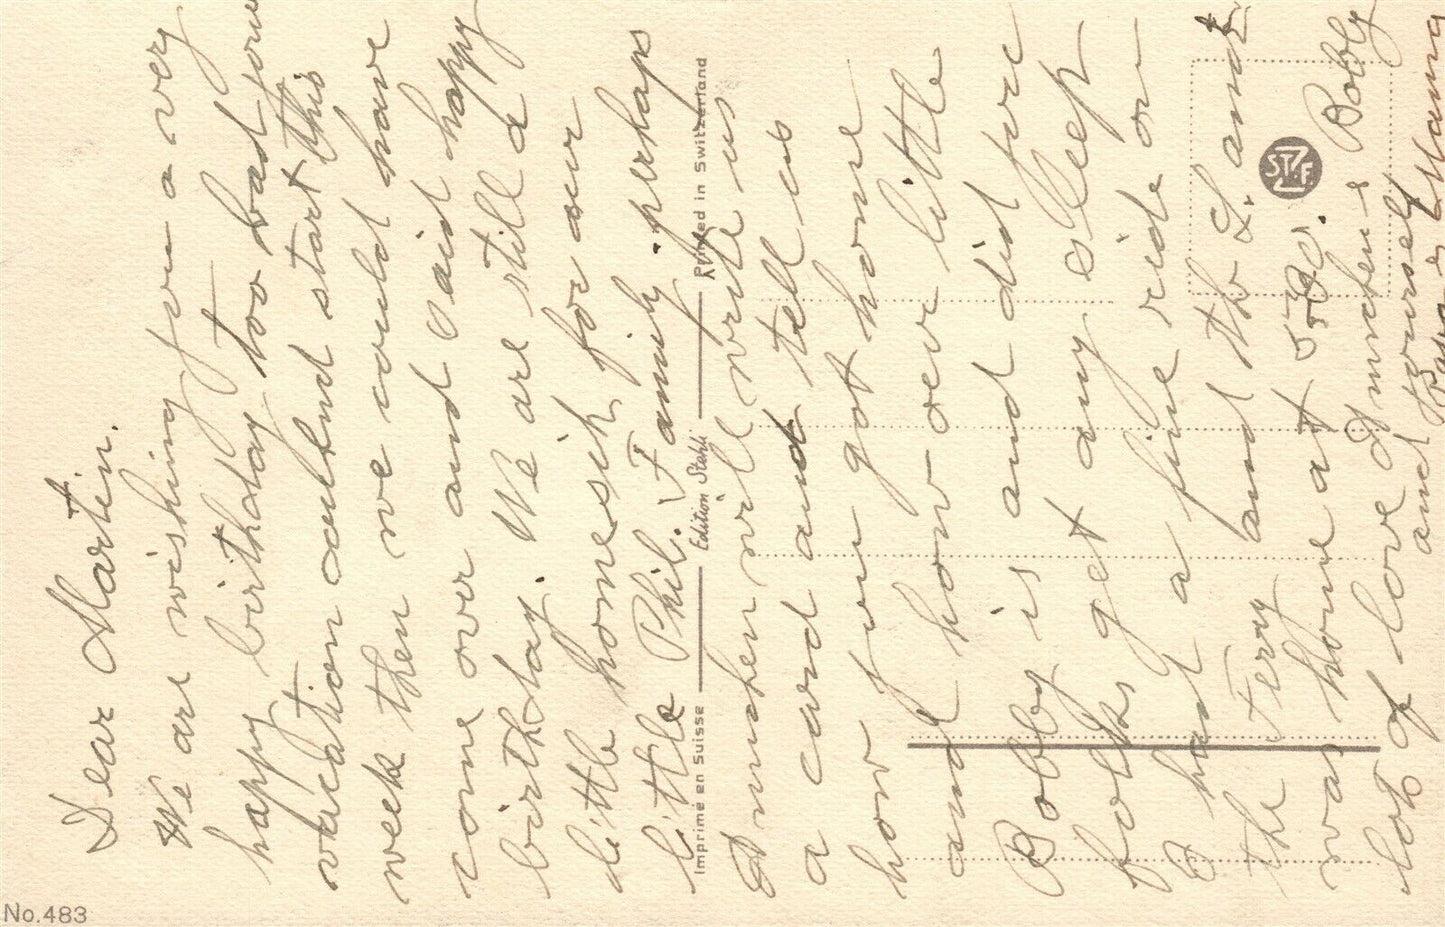 Dear Martin.
We are wishing you a very
happy birthday too bad your
vacation couldnt start this
week then we could have
come over and said happy
birthday. We are still a
little homesick for our
little Phil. Family. perhaps
Gretchen will write us
a card and tell us
how you got home
and how our little
Bobby is and did five
folks get any sleep
I had a fine ride on
the Ferry and the L. and
was home at 530.
lots of love Bobby
and yourself
Papa & Mama
Imprimé en Suisse
Edition Stehli
Printed in Switzerland
STZF
No.483